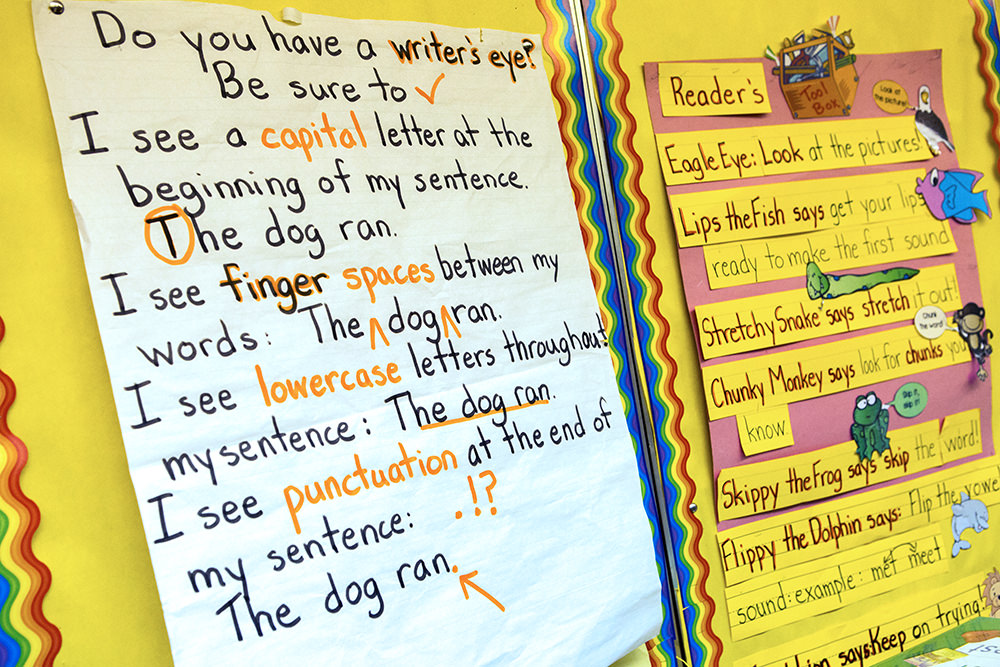 Do you have a writer's eye?
Be sure to ✓
I see a capital letter at the
beginning of my sentence.
The dog ran.
I see finger spaces between my
words: The ∧ dog ∧ ran.
I see lowercase letters throughout
my sentence: The dog ran.
I see punctuation at the end of
my sentence: . ! ?
The dog ran.
Reader's
Tool
Box
Look at
the picture!
Eagle Eye: Look at the pictures!
Lips the Fish says get your lips
ready to make the first sound
Stretchy Snake says stretch it out!
Chunk
the word!
Chunky Monkey says look for chunks you
know
Skip it,
skip it!
Skippy the Frog says skip the word!
Flippy the Dolphin says: Flip the vowel
sound: example: met meet
Lion says: Keep on trying!